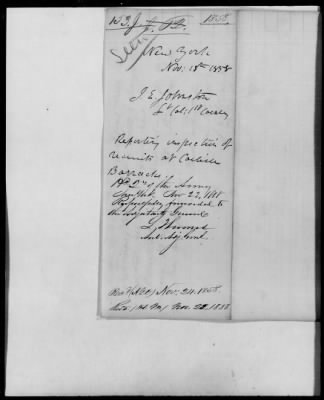 1858
Seen
New York
Nov: 18th 1858
J. E. Johnston
Lt Col: 1st Cavalry
Reporting inspection of
recruits at Carlisle
Barracks.
Hd Qrs of the Army
Nov 22, 1858
Respectfully forwarded to
the Adjutant General
L Thomas
Asst. Adj Genl.
Nov: 24. 1858
Nov. 22 1858